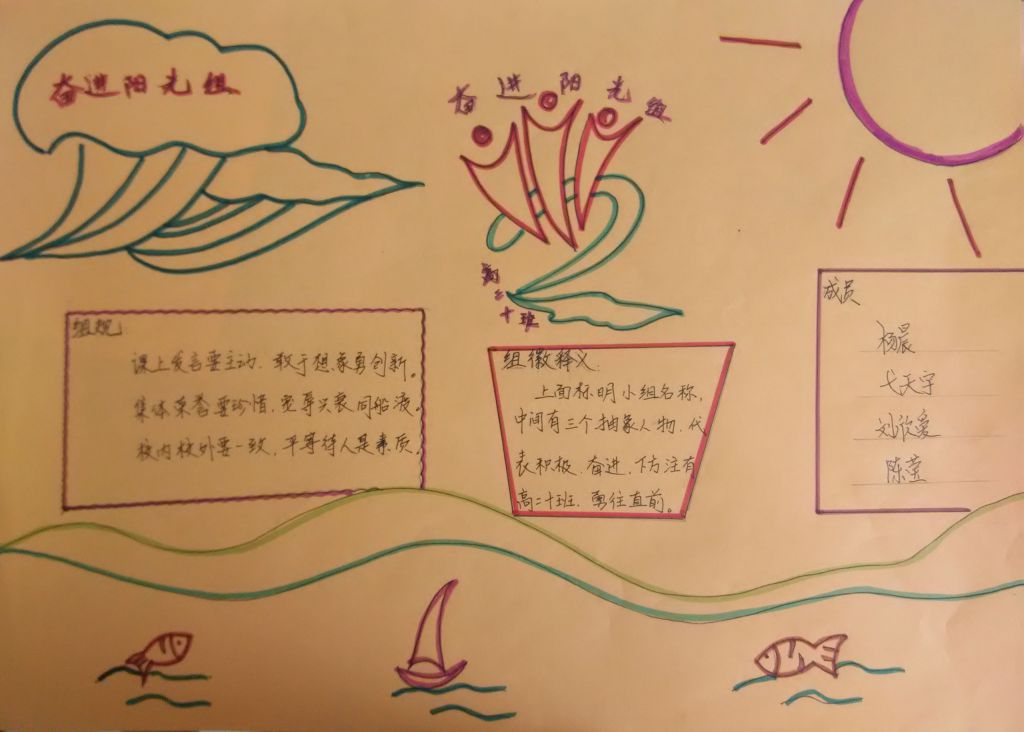 奋进阳光组
奋进阳光组
高二十班
组规:
课上发言要主动.敢于想象勇创新。
集体荣誉要珍惜.宠辱兴衰同船渡。
校内校外要一致.平等待人是素质。
组徽释义:
上面标明小组名称,
中间有三个抽象人物.代
表积极.奋进.下方注有
高二十班.勇往直前。
成员
杨晨
弋天宇
刘欣爱
陈莹